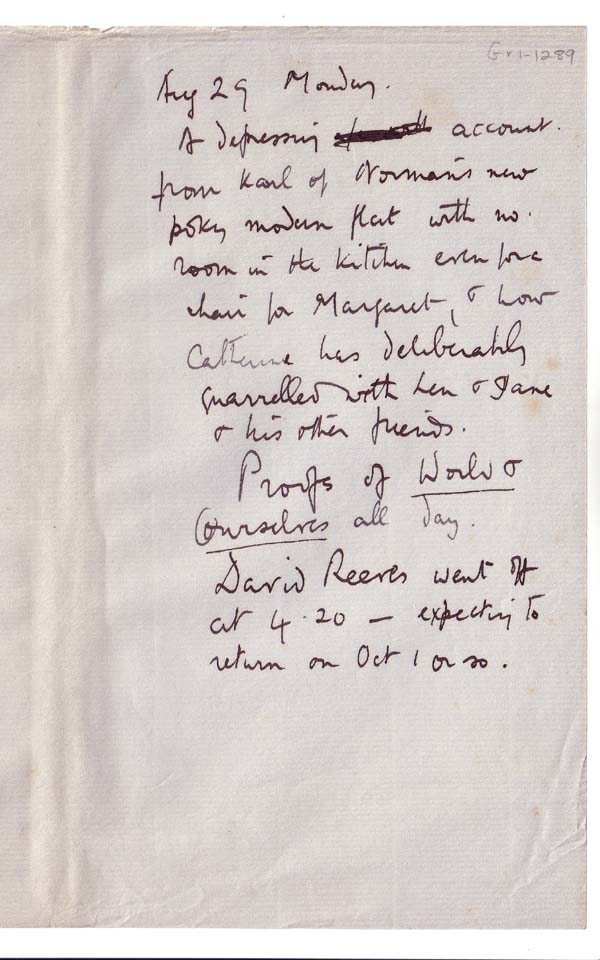 Gr1-1289
Aug 29 Monday.
A depressing account.
from Karl of Norman's new
poky modern flat with no
room in the kitchen even for a
chair for Margaret, & how
Catherine has deliberately
quarrelled with Len & Jane
& his other friends.
Proofs of World &
Ourselves all day.
David Reeves went off
at 4.20 — expecting to
return on Oct 1 or so.